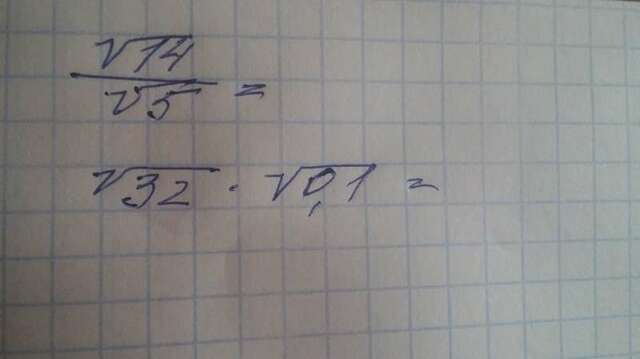 √14
√5 =
√32 · √0,1 =